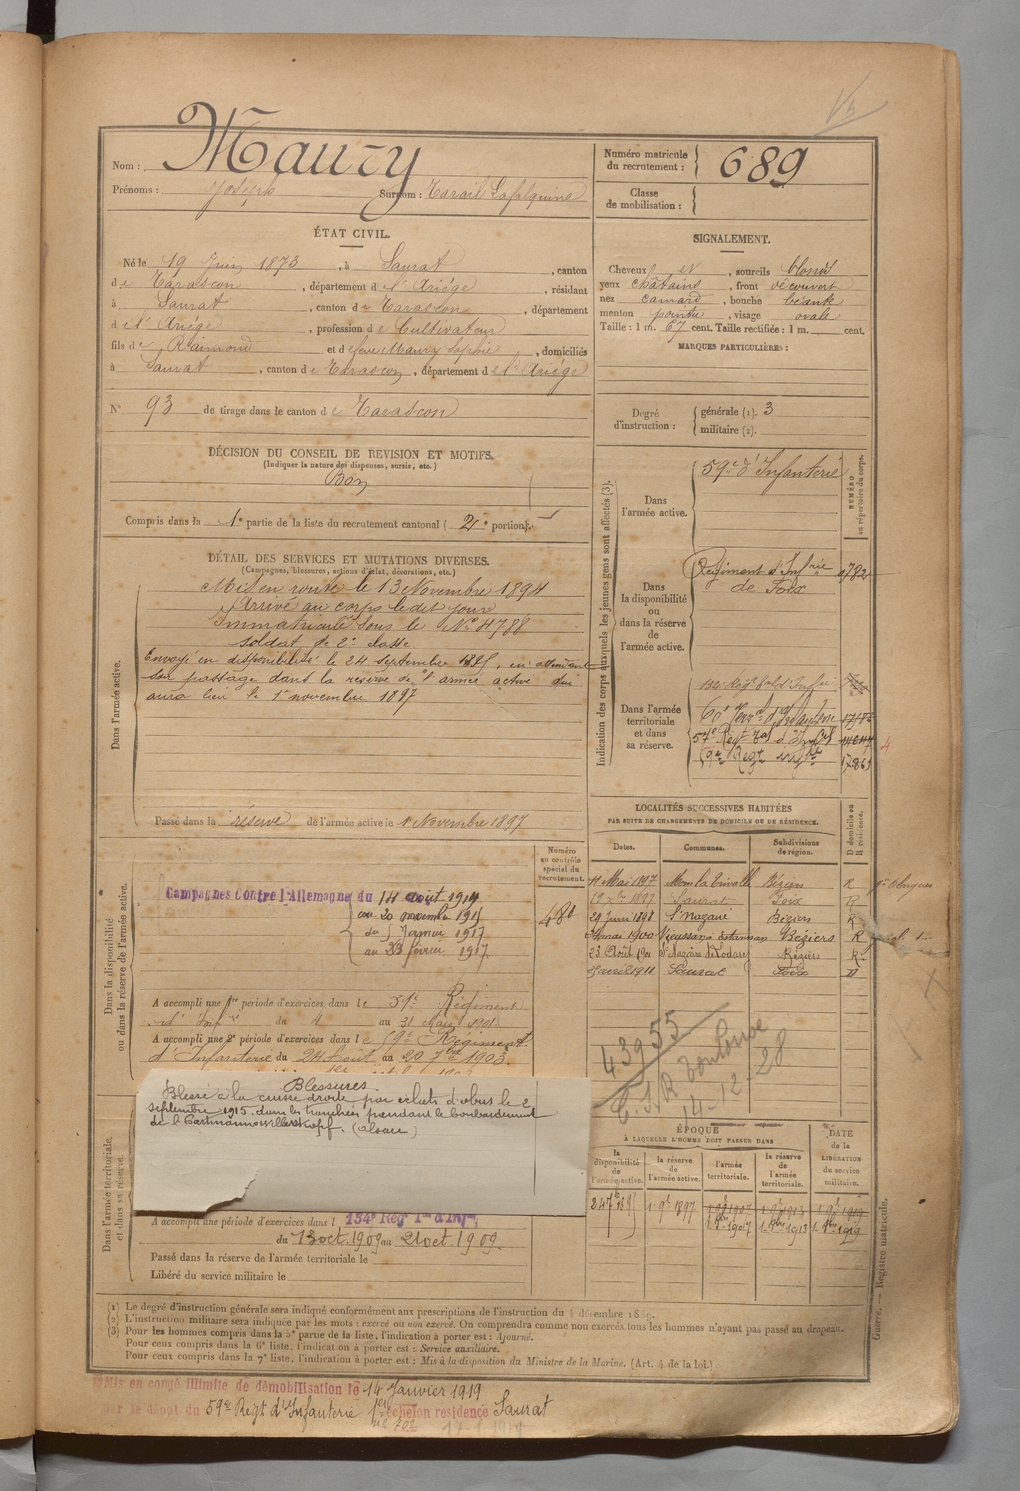 Nom : Maury
Prénoms : Joseph Surnom :
Numéro matricule du recrutement : 689
Classe de mobilisation :
ÉTAT CIVIL.
Né le 19 Juin 1873, à Saurat, canton
de Tarascon, département de l'Ariège, résidant
à Saurat, canton de Tarascon, département
de l'Ariège, profession de Cultivateur
fils de Raimond et de feue Maury Sophie, domiciliés
à Saurat, canton de Tarascon, département de l'Ariège
N° 93 de tirage dans le canton de Tarascon
SIGNALEMENT.
Cheveux et sourcils blonds
yeux châtains, front découvert
nez camard, bouche béante
menton pointu, visage ovale
Taille : 1 m. 67 cent. Taille rectifiée : 1 m. cent.
MARQUES PARTICULIÈRES :
Degré d'instruction : générale (1). 3
militaire (2).
DÉCISION DU CONSEIL DE REVISION ET MOTIFS.
(Indiquer la nature des dispenses, sursis, etc.)
Bon
Compris dans la 1e partie de la liste du recrutement cantonal (2e portion).
DÉTAIL DES SERVICES ET MUTATIONS DIVERSES.
(Campagnes, blessures, actions d'éclat, décorations, etc.)
Dans l'armée active.
Mis en route le 13 Novembre 1894
Arrivé au corps le dit jour
Immatriculé sous le N° 4788
soldat de 2e classe
Envoyé en disponibilité le 24 septembre 1895, en attendant
son passage dans la réserve de l'armée active qui
aura lieu le 1er novembre 1897
Passé dans la réserve de l'armée active le 1 Novembre 1897
Indication des corps auxquels les jeunes gens sont affectés (3).
NUMÉRO au répertoire du corps.
Dans l'armée active.
59e d'Infanterie
Dans la disponibilité ou dans la réserve de l'armée active.
Régiment d'Infrie de Foix 1782
Dans l'armée territoriale et dans sa réserve.
57e Régt
Dans la disponibilité ou dans la réserve de l'armée active.
Numéro au contrôle spécial du recrutement.
Campagnes Contre l'Allemagne du 14 août 1914
au 20 novembre 1915
du 5 Janvier 1917
au 23 février 1917.
A accompli une 1re période d'exercices dans le Régiment
d'Infie du au 31 Mars 1901
A accompli une 2e période d'exercices dans le 59e Régiment
d'Infanterie du 24 Août au 20 7bre 1903.
Blessures
Blessé à la cuisse droite par éclats d'obus le 2
septembre 1915 dans les tranchées pendant le bombardement
de l'Hartmannswillerskopf. (Alsace)
LOCALITÉS SUCCESSIVES HABITÉES
PAR SUITE DE CHANGEMENTS DE DOMICILE OU DE RÉSIDENCE.
Dates. Communes. Subdivisions de région. D domicile ou R résidence.
11 Mai 1897 Béziers R
Saurat Foix R
29 Juin 1898 St Nazaire Béziers R
mai 1900 Vieussan Béziers R
23 Août 1901 St Nazaire de Ladarez Béziers R
avril 1911 Saurat Foix D
43955
Toulouse
14-12-28
ÉPOQUE
À LAQUELLE L'HOMME DOIT PASSER DANS
DATE DE LA LIBÉRATION du service militaire.
la disponibilité de l'armée active. la réserve de l'armée active. l'armée territoriale. la réserve de l'armée territoriale.
24 7bre 1895 1 9bre 1897 1 9bre 1907 1 9bre 1913 1 9bre 1919
1. 8bre 1907 1. 8bre 1913 1. 8bre 1919
Dans l'armée territoriale, et dans sa réserve.
A accompli une période d'exercices dans l 134e Reg. Ter d'Infie
du 13 oct. 1909 au 21 oct. 1909.
Passé dans la réserve de l'armée territoriale le
Libéré du service militaire le
(1) Le degré d'instruction générale sera indiqué conformément aux prescriptions de l'instruction du 4 décembre 1889.
(2) L'instruction militaire sera indiquée par les mots : exercé ou non exercé. On comprendra comme non exercés tous les hommes n'ayant pas passé au drapeau.
(3) Pour les hommes compris dans la 5e partie de la liste, l'indication à porter est : Ajourné.
Pour ceux compris dans la 6e liste, l'indication à porter est : Service auxiliaire.
Pour ceux compris dans la 7e liste, l'indication à porter est : Mis à la disposition du Ministre de la Marine. (Art. 4 de la loi.)
Guerre. — Registre matricule.
Mis en congé illimité de démobilisation le 14 Janvier 1919
par le dépôt du 59e Régt d'Infanterie 1er échelon résidence Saurat